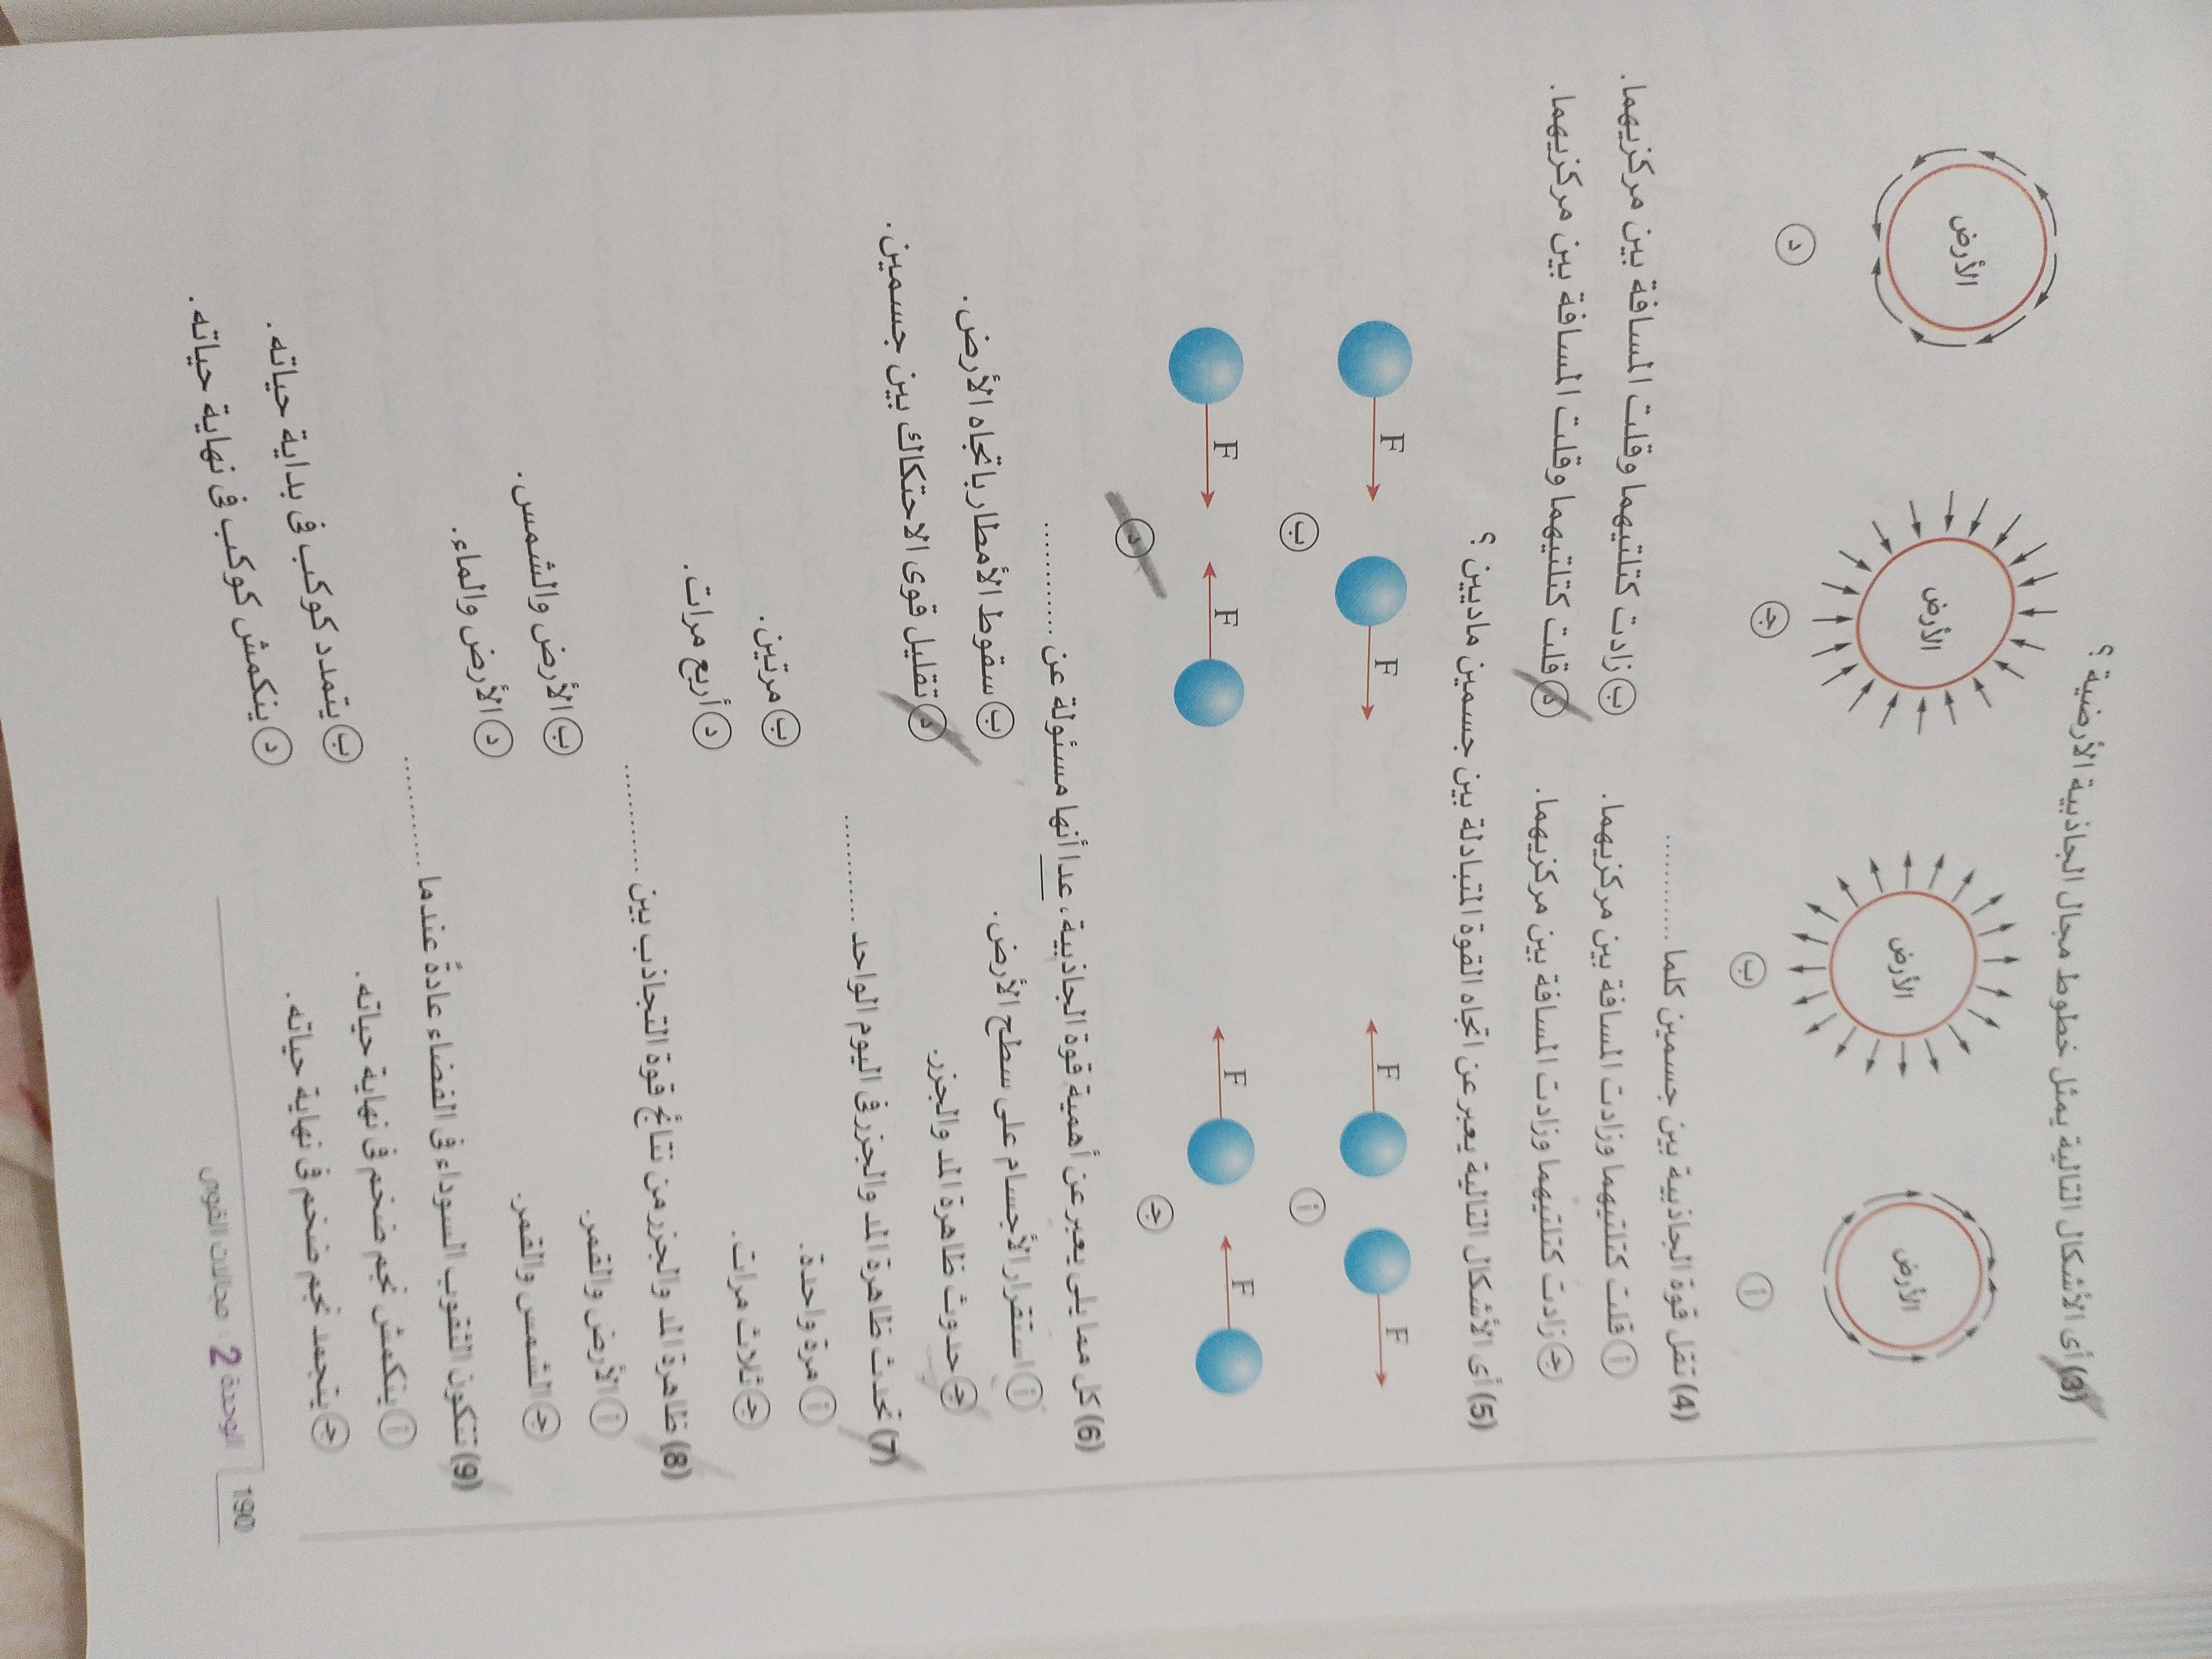 (3) أى الأشكال التالية يمثل خطوط مجال الجاذبية الأرضية ؟
الأرض الأرض الأرض الأرض
أ ب ج د
(4) تقل قوة الجاذبية بين جسمين كلما ............
أ قلت كتلتيهما وزادت المسافة بين مركزيهما. ب زادت كتلتيهما وقلت المسافة بين مركزيهما.
ج زادت كتلتيهما وزادت المسافة بين مركزيهما. د قلت كتلتيهما وقلت المسافة بين مركزيهما.
(5) أى الأشكال التالية يعبر عن اتجاه القوة المتبادلة بين جسمين ماديين ؟
F F F F
أ ب
F F F F
ج د
(6) كل مما يلى يعبر عن أهمية قوة الجاذبية، عدا أنها مسئولة عن ............
أ استقرار الأجسام على سطح الأرض. ب سقوط الأمطار باتجاه الأرض.
ج حدوث ظاهرة المد والجزر. د تقليل قوى الاحتكاك بين جسمين.
(7) تحدث ظاهرة المد والجزر فى اليوم الواحد ............
أ مرة واحدة. ب مرتين.
ج ثلاث مرات. د أربع مرات.
(8) ظاهرة المد والجزر من نتائج قوة التجاذب بين ............
أ الأرض والقمر. ب الأرض والشمس.
ج الشمس والقمر. د الأرض والماء.
(9) تتكون الثقوب السوداء فى الفضاء عادةً عندما ............
أ ينكمش نجم ضخم فى نهاية حياته. ب يتمدد كوكب فى بداية حياته.
ج يتجمد نجم ضخم فى نهاية حياته. د ينكمش كوكب فى نهاية حياته.
190 الوحدة 2 : مجالات القوى